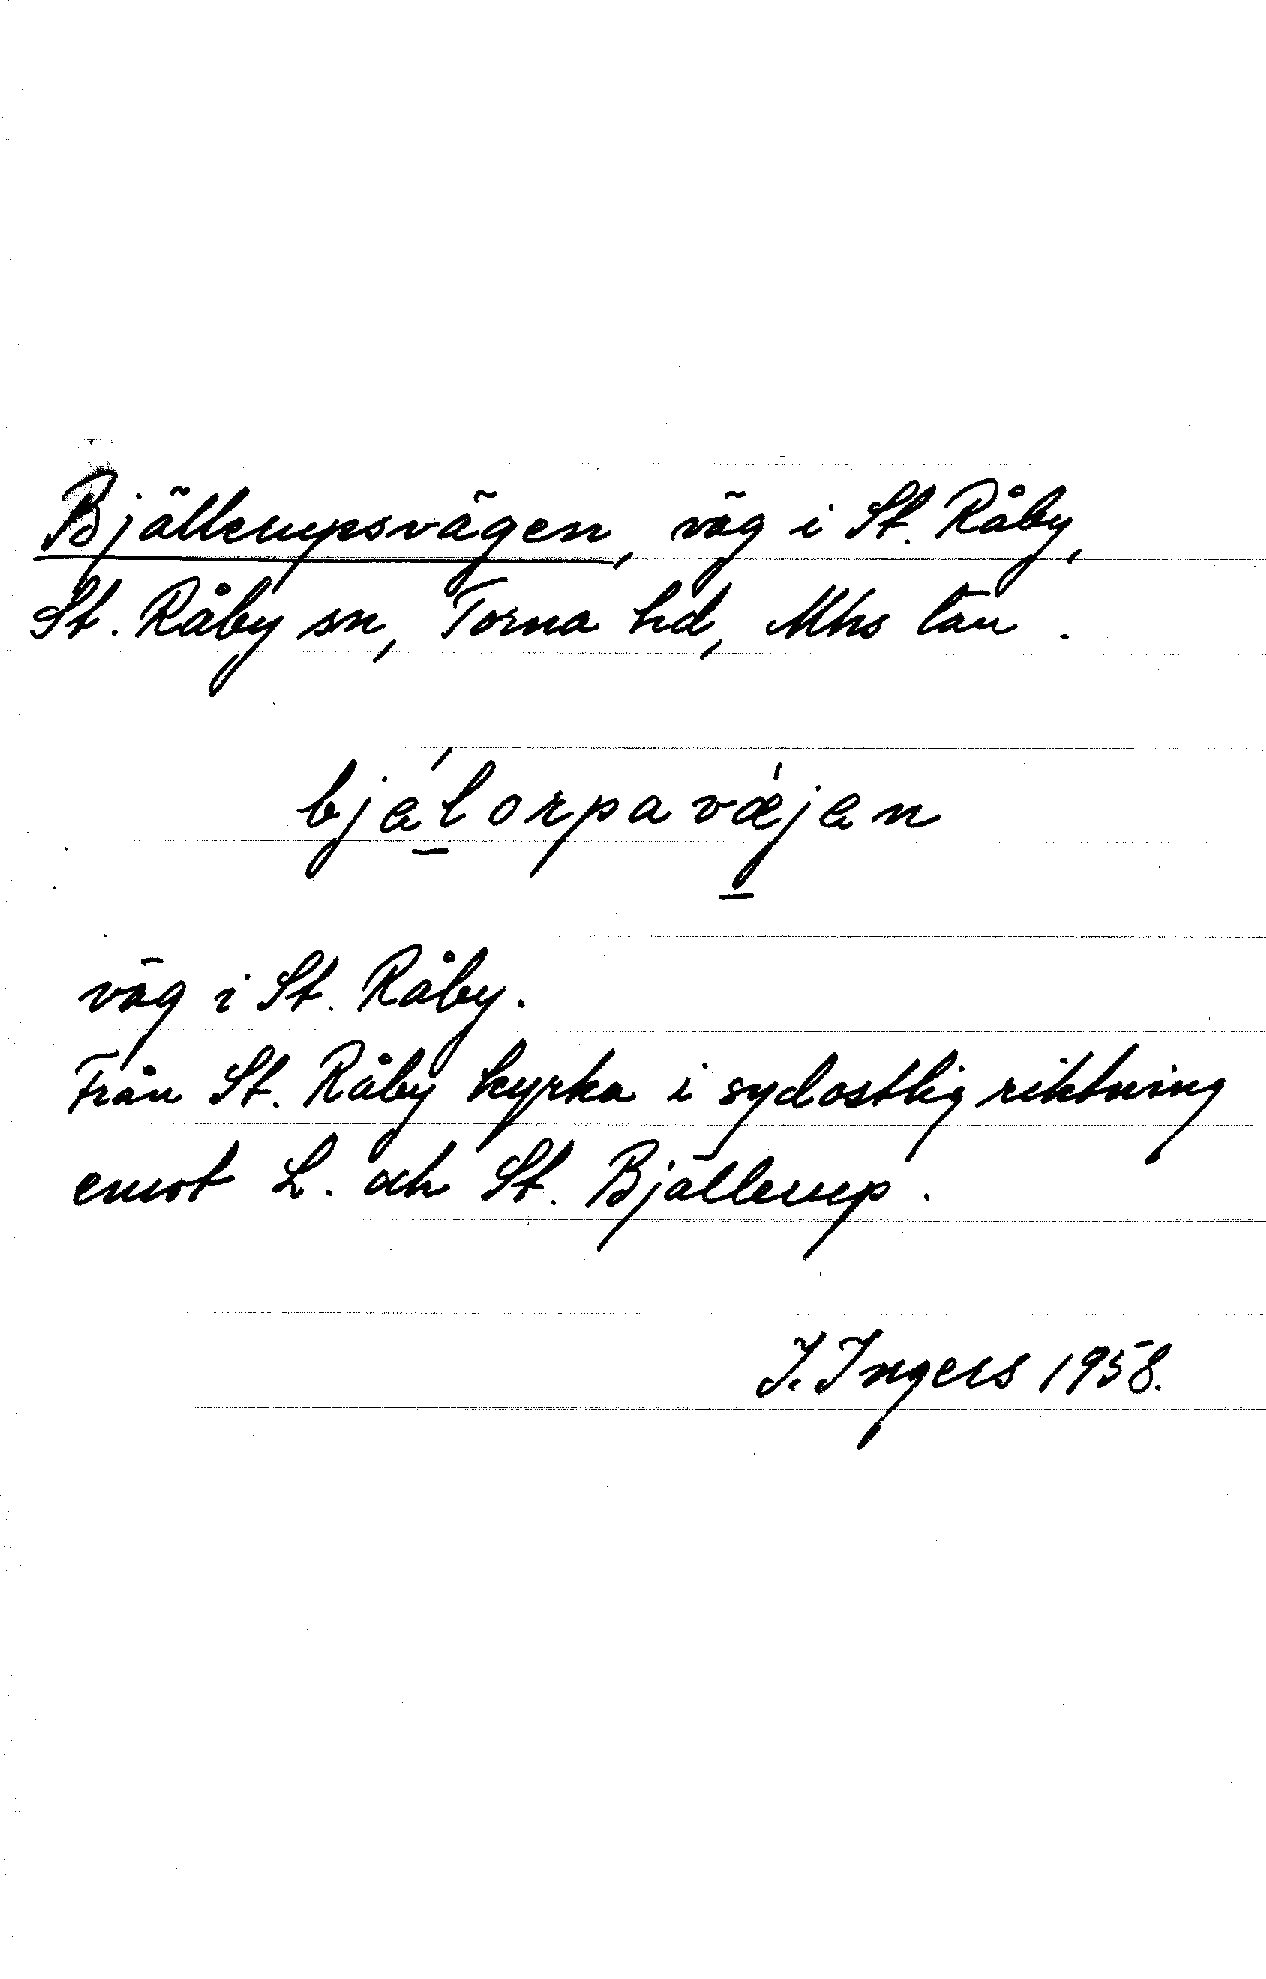 Bjällerupsvägen, väg i St. Råby,
St. Råby sn, Torna hd, Mhs län.
bjálorpavǽjan
väg i St. Råby.
Från St. Råby kyrka i sydostlig riktning
emot L. och St. Bjällerup.
I. Ingers 1958.